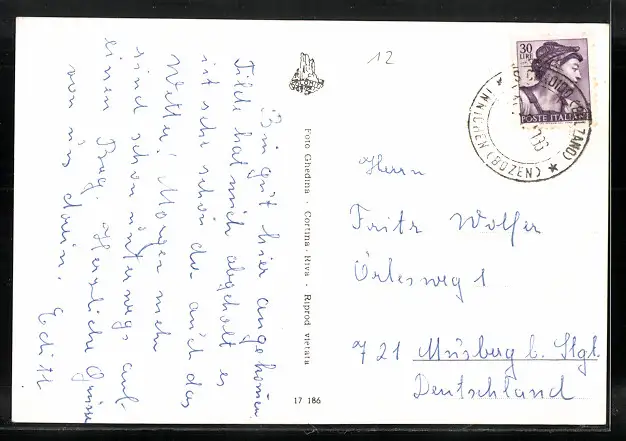 Bin gut hier angekommen
Tilde hat mich abgeholt es
ist sehr schön da. auch das
Wetter! Morgen mehr
sind schon unterwegs auf
einen Berg. Herzliche Grüsse
von uns
Edith
Foto Ghedina · Cortina · Riva · Riprod vietata
17 186
12
30
LIRE
POSTE ITALIANE
INNICHEN (BOZEN)
Herrn
Fritz Wolfer
Ortlesweg 1
721 Musberg b. Stgt.
Deutschland